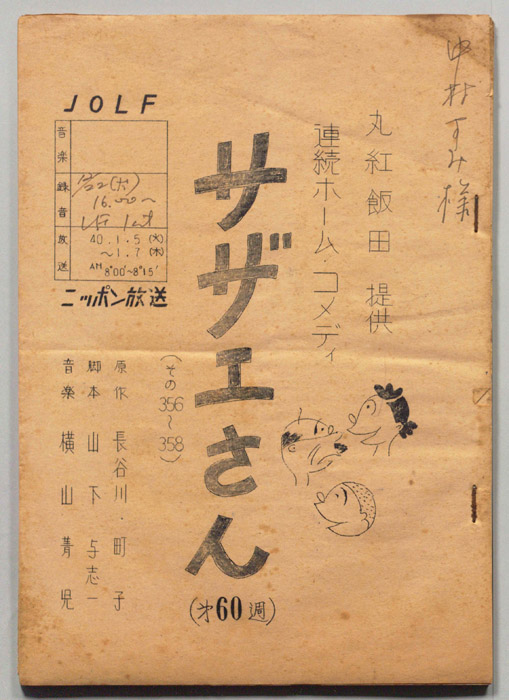 中村すみ様
丸紅飯田 提供
連続ホーム・コメディ
サザエさん
(第60週)
(その356〜358)
JOLF
音楽
録音
16.00〜
放送 40.1.5(火)
〜1.7(木)
AM 8°00'~8°15'
ニッポン放送
原作 長谷川・町子
脚本 山下与志一
音楽 横山菁児